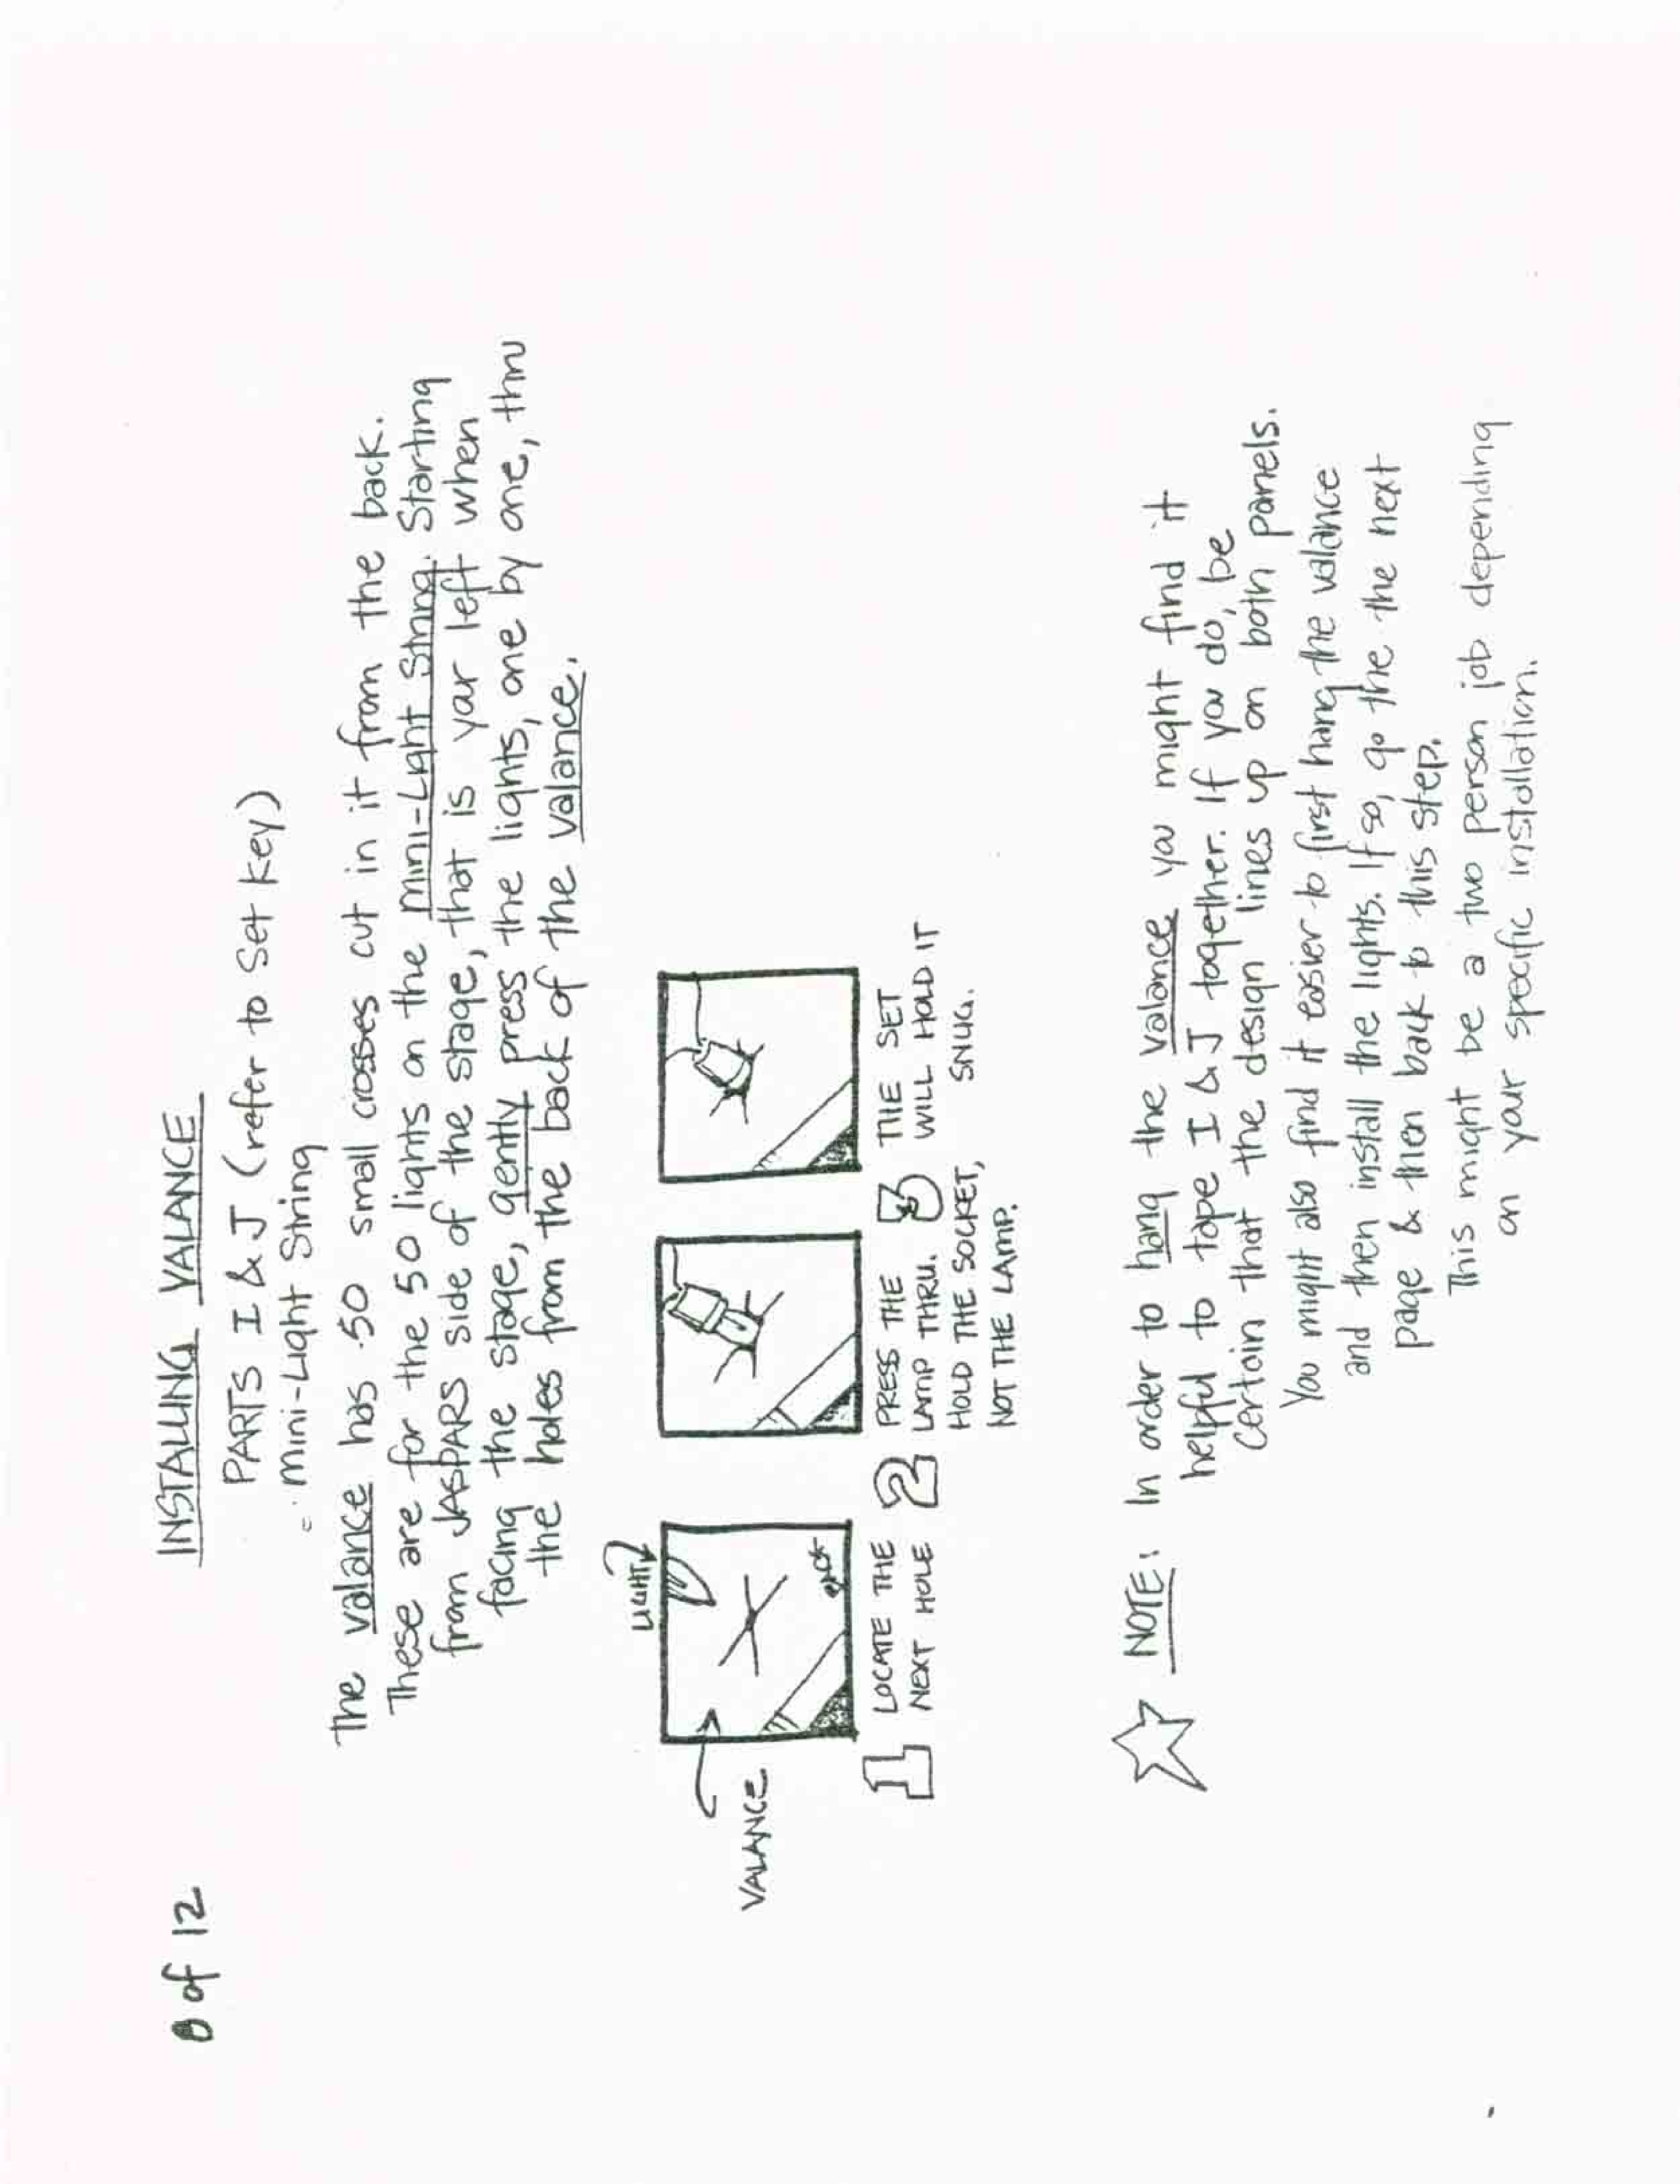 8 of 12
INSTALLING VALANCE
PARTS I & J (refer to Set Key)
mini-Light String
The valance has 50 small crosses cut in it from the back.
These are for the 50 lights on the mini-Light String. Starting
from JASPARS side of the stage, that is your left when
facing the stage, gently press the lights, one by one, thru
the holes from the back of the valance.
LIGHT
VALANCE
BACK
1 LOCATE THE
NEXT HOLE
2 PRESS THE
LAMP THRU.
HOLD THE SOCKET,
NOT THE LAMP.
3 THE SET
WILL HOLD IT
SNUG.
NOTE: In order to hang the valance you might find it
helpful to tape I & J together. If you do, be
certain that the design lines up on both panels.
You might also find it easier to first hang the valance
and then install the lights. If so, go the the next
page & then back to this step.
This might be a two person job depending
on your specific installation.